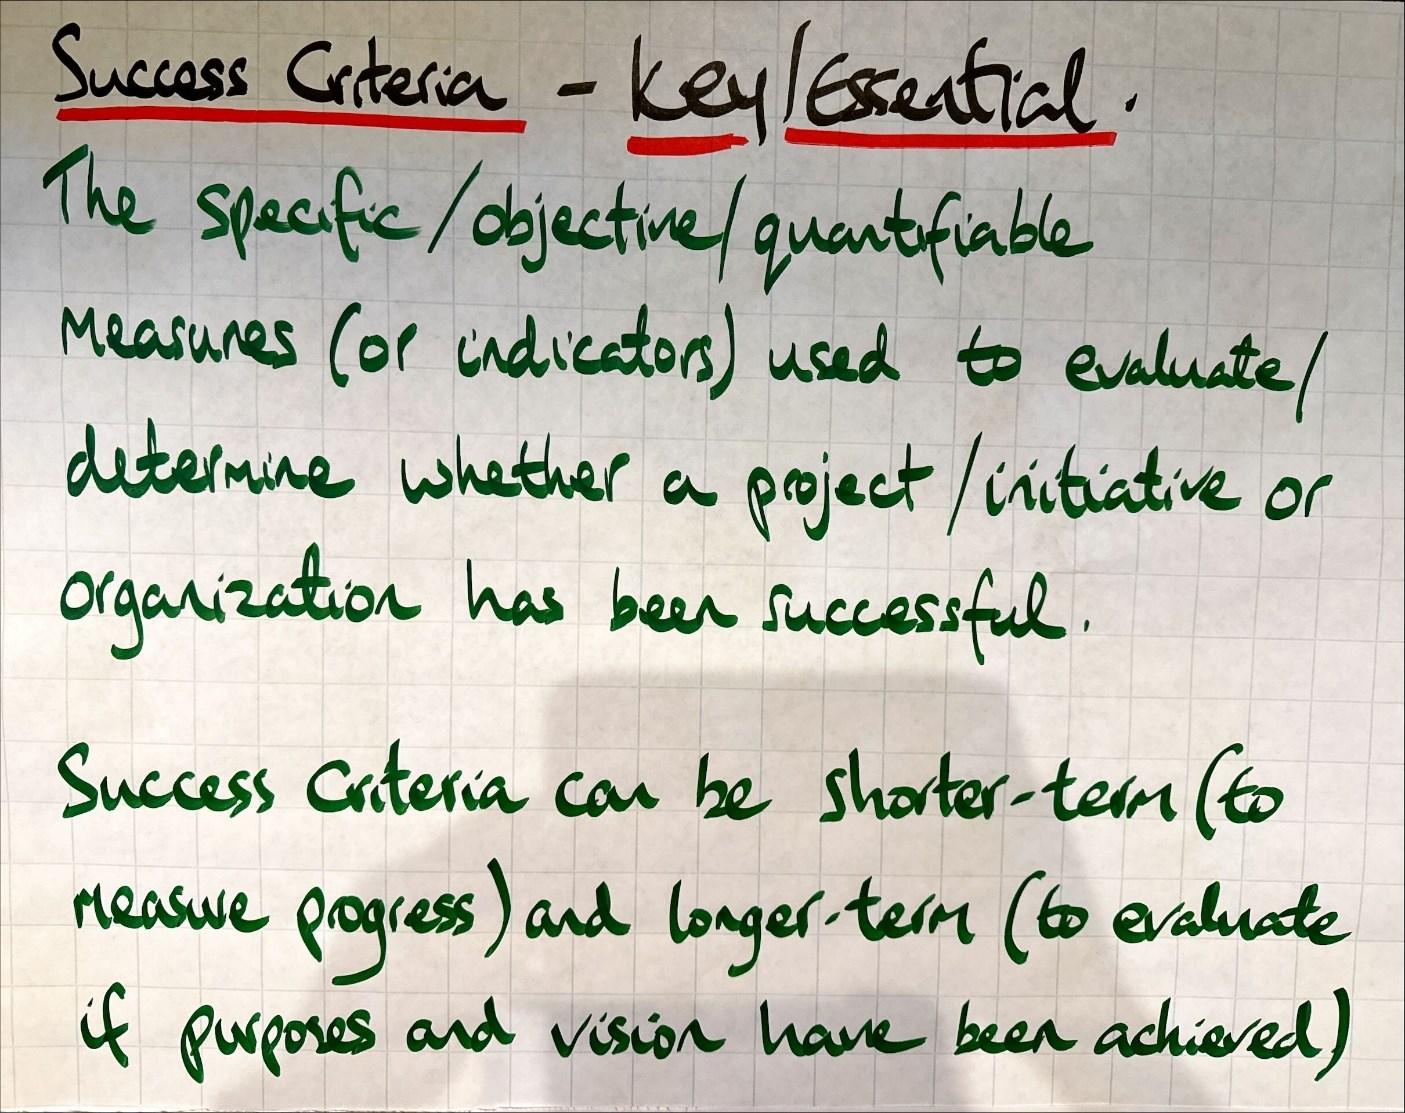 Success Criteria - Key/Essential.
The specific/objective/quantifiable
Measures (or indicators) used to evaluate/
determine whether a project/initiative or
organization has been successful.
Success Criteria can be shorter-term (to
measure progress) and longer-term (to evaluate
if purposes and vision have been achieved)